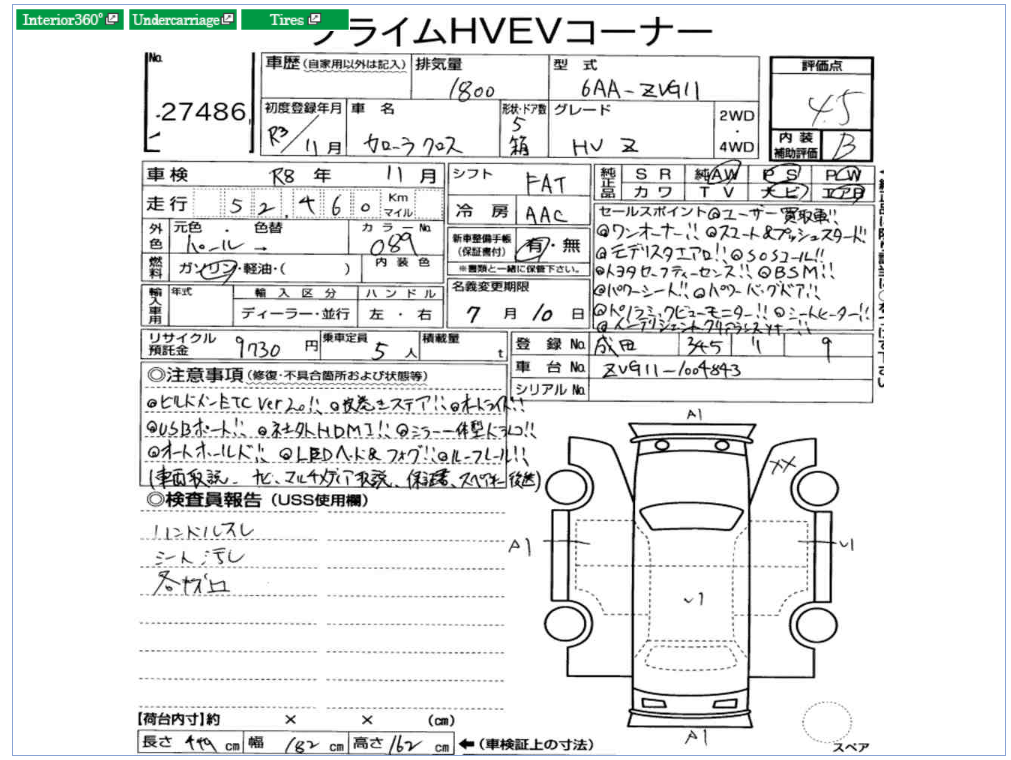 Interior360° Undercarriage Tires
プライムHVEVコーナー
No. 27486
車歴 (自家用以外は記入)
排気量 1800
型式 6AA-ZVG11
評価点 4.5
初度登録年月 R3/11月
車名 カローラクロス
形状・ドア数 5 箱
グレード HV Z
2WD ・ 4WD
内装補助評価 B
車検 R8年 11月
シフト FAT
純正品 SR 純AW PS PW
カワ TV ナビ エアB
走行 52,460 Km マイル
冷房 AAC
外色 元色・色替 パール →
カラーNo. 089
新車整備手帳(保証書付) 有・無
※書類と一緒に保管下さい。
燃料 ガソリン・軽油・( )
内装色
セールスポイント◎ユーザー買取車!!
◎ワンオーナー!! ◎スマート&プッシュスタート!!
◎モデリスタエアロ!! ◎SOSコール!!
◎トヨタセーフティーセンス!! ◎BSM!!
◎パワーシート!! ◎パワーバックドア!!
◎パノラミックビューモニター!! ◎シートヒーター!!
◎インテリジェントクリアランスソナー!!
輸入車用 年式 輸入区分 ハンドル
ディーラー・並行 左・右
名義変更期限 7月10日
リサイクル預託金 9730円
乗車定員 5人
積載量 t
登録No. 成田 345 9
車台No. ZVG11-1004843
シリアルNo.
◎注意事項 (修復・不具合箇所および状態等)
◎ビルトインETC Ver2.0!! ◎革巻きステア!! ◎オートライト!!
◎USBポート!! ◎社外HDMI!! ◎ミラー一体型ドラレコ!!
◎オートホールド!! ◎LEDヘッド&フォグ!! ◎ルーフレール!!
(車両取説、ナビ、マルチメディア取説、保証書、スペアキー後送)
◎検査員報告 (USS使用欄)
ハンドルスレ
シート汚レ
各サビ
A1
XX
A1
U1
U1
A1
スペア
【荷台内寸】約 × × (cm)
長さ 449 cm 幅 182 cm 高さ 162 cm ←(車検証上の寸法)